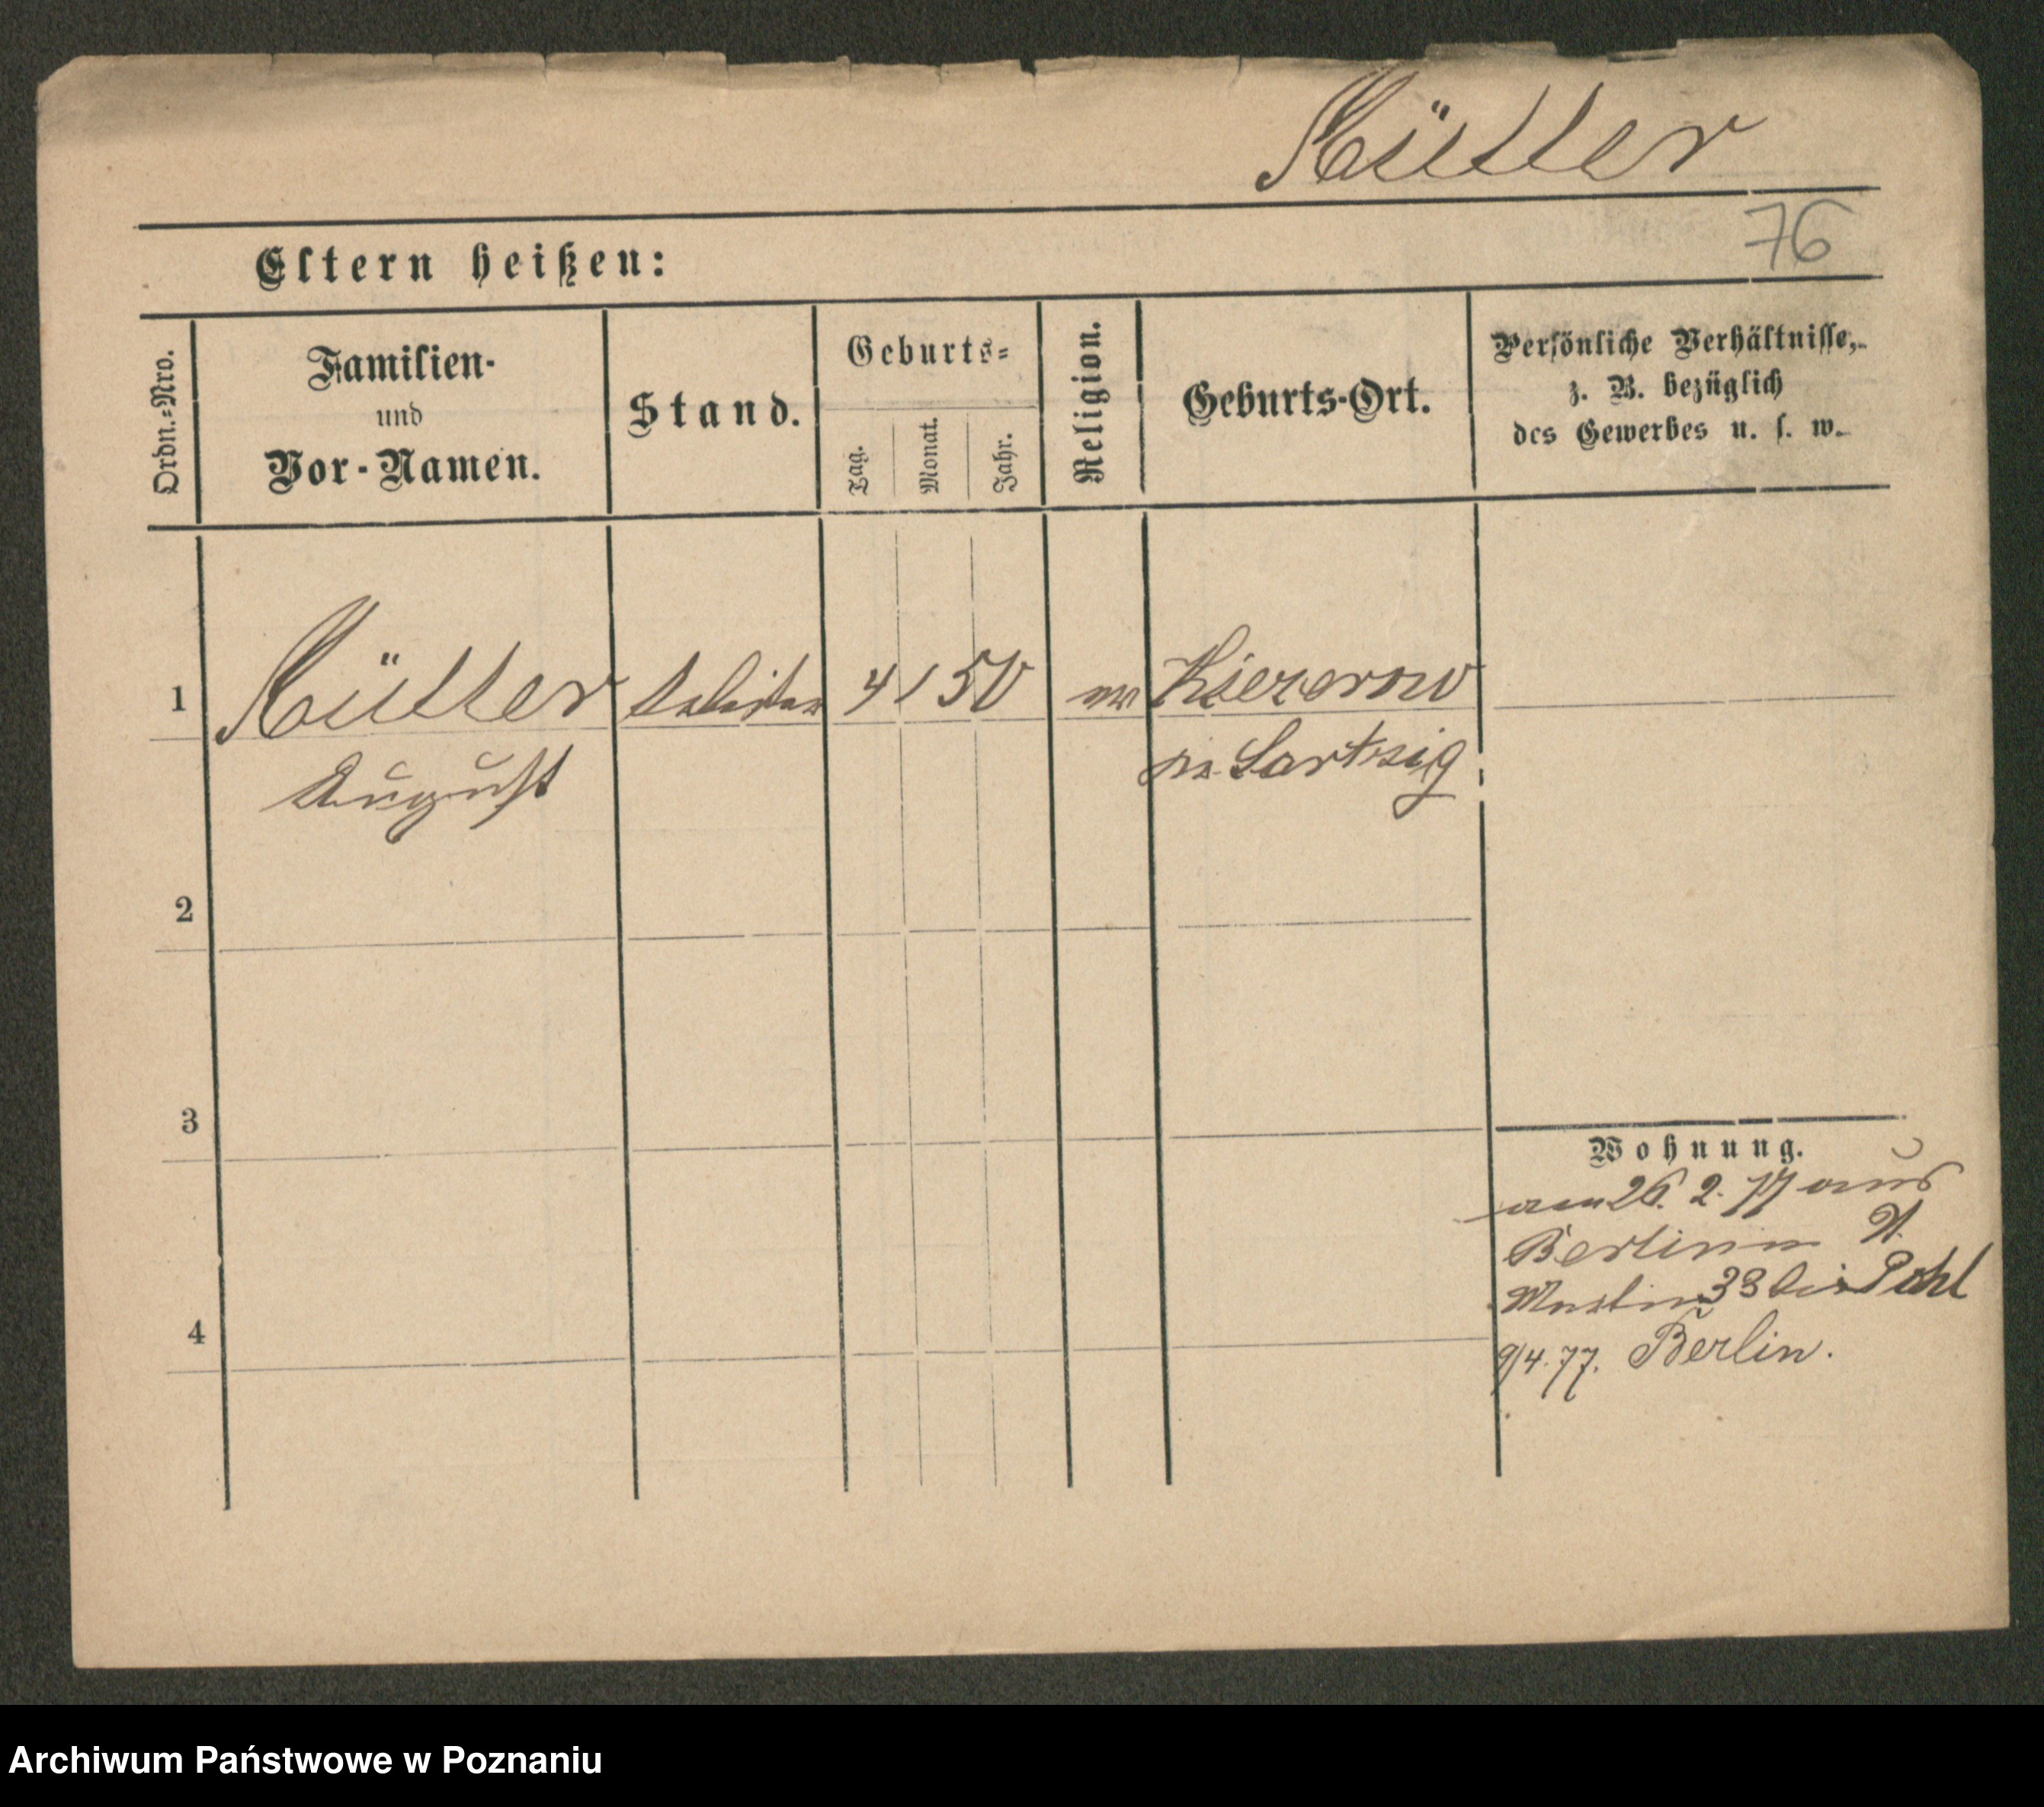 Kütter
76
Eltern heißen:
Ordn.=Nro.
Familien-
und
Vor-Namen.
Stand.
Geburts=
Tag.
Monat.
Jahr.
Religion.
Geburts-Ort.
Persönliche Verhältnisse,
z. B. bezüglich
des Gewerbes u. s. w.
1 Kütter 4/50
August
2
3
4
Wohnung.
am 26. 2. 77 aus
Berlin
33 bei Pohl
9/4.77. Berlin.
Archiwum Państwowe w Poznaniu